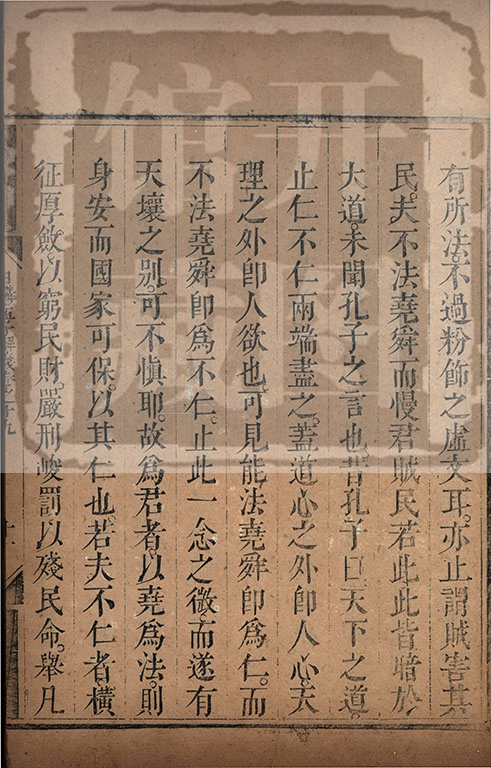 有所法不過粉飾之虛文耳亦止謂賊害其
民夫不法堯舜而慢君賊民若此此皆暗於
大道未聞孔子之言也昔孔子曰天下之道
止仁不仁兩端盡之蓋道心之外卽人心天
理之外卽人欲也可見能法堯舜卽爲仁而
不法堯舜卽爲不仁止此一念之微而遂有
天壤之别可不慎耶故爲君者以堯爲法則
身安而國家可保以其仁也若夫不仁者橫
征厚斂以窮民財嚴刑峻罰以殘民命舉凡